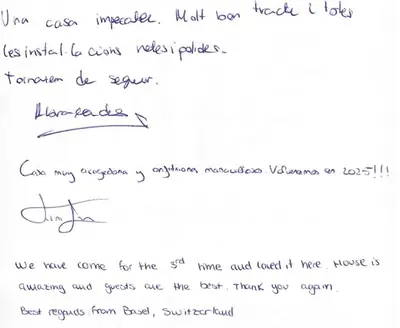 Una casa impecable. Molt bon tracte i totes
les instal·lacions netes i polides.
Tornarem de segur.
Casa muy acogedora y anfitriona maravillosa. Volveremos en 2025!!!
We have come for the 3rd time and loved it here. House is
amazing and guests are the best. Thank you again.
Best regards from Basel, Switzerland